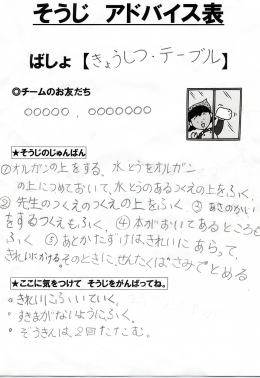 そうじ アドバイス表
ばしょ【きょうしつ・テーブル】
◎チームのお友だち
○○○○○、○○○○○○○
★そうじのじゅんばん
①オルガンの上をする。水とうをオルガン
の上につめておいて、水とうのあるつくえの上をふく。
②先生のつくえのつくえの上をふく ③
をするつくえもふく。④本がおいてあるところも
ふく ⑤あとかたずけは、きれいにあらって、
きれいにかける。そのときに、せんたくばさみでとめる
★ここに気をつけて そうじをがんばってね。
◦きれいにふいていく。
◦すきまがないようにふく。
◦ぞうきんは、2回たたむ。